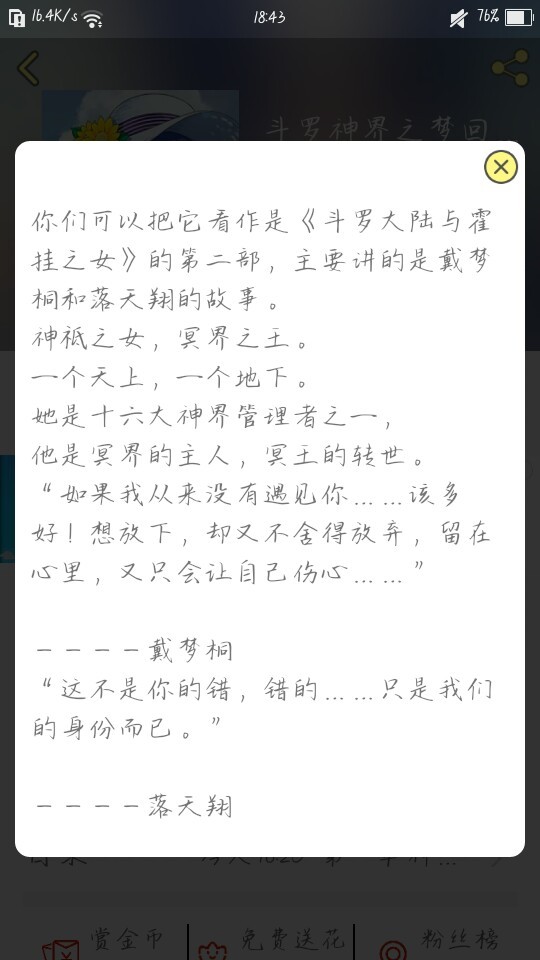 16.4K/s
18:43
76%
斗罗神界之梦回
你们可以把它看作是《斗罗大陆与霍
挂之女》的第二部，主要讲的是戴梦
桐和落天翔的故事。
神祇之女，冥界之王。
一个天上，一个地下。
她是十六大神界管理者之一，
他是冥界的主人，冥王的转世。
“如果我从来没有遇见你……该多
好！想放下，却又不舍得放弃，留在
心里，又只会让自己伤心……”
－－－－戴梦桐
“这不是你的错，错的……只是我们
的身份而已。”
－－－－落天翔
赏金币
免费送花
粉丝榜